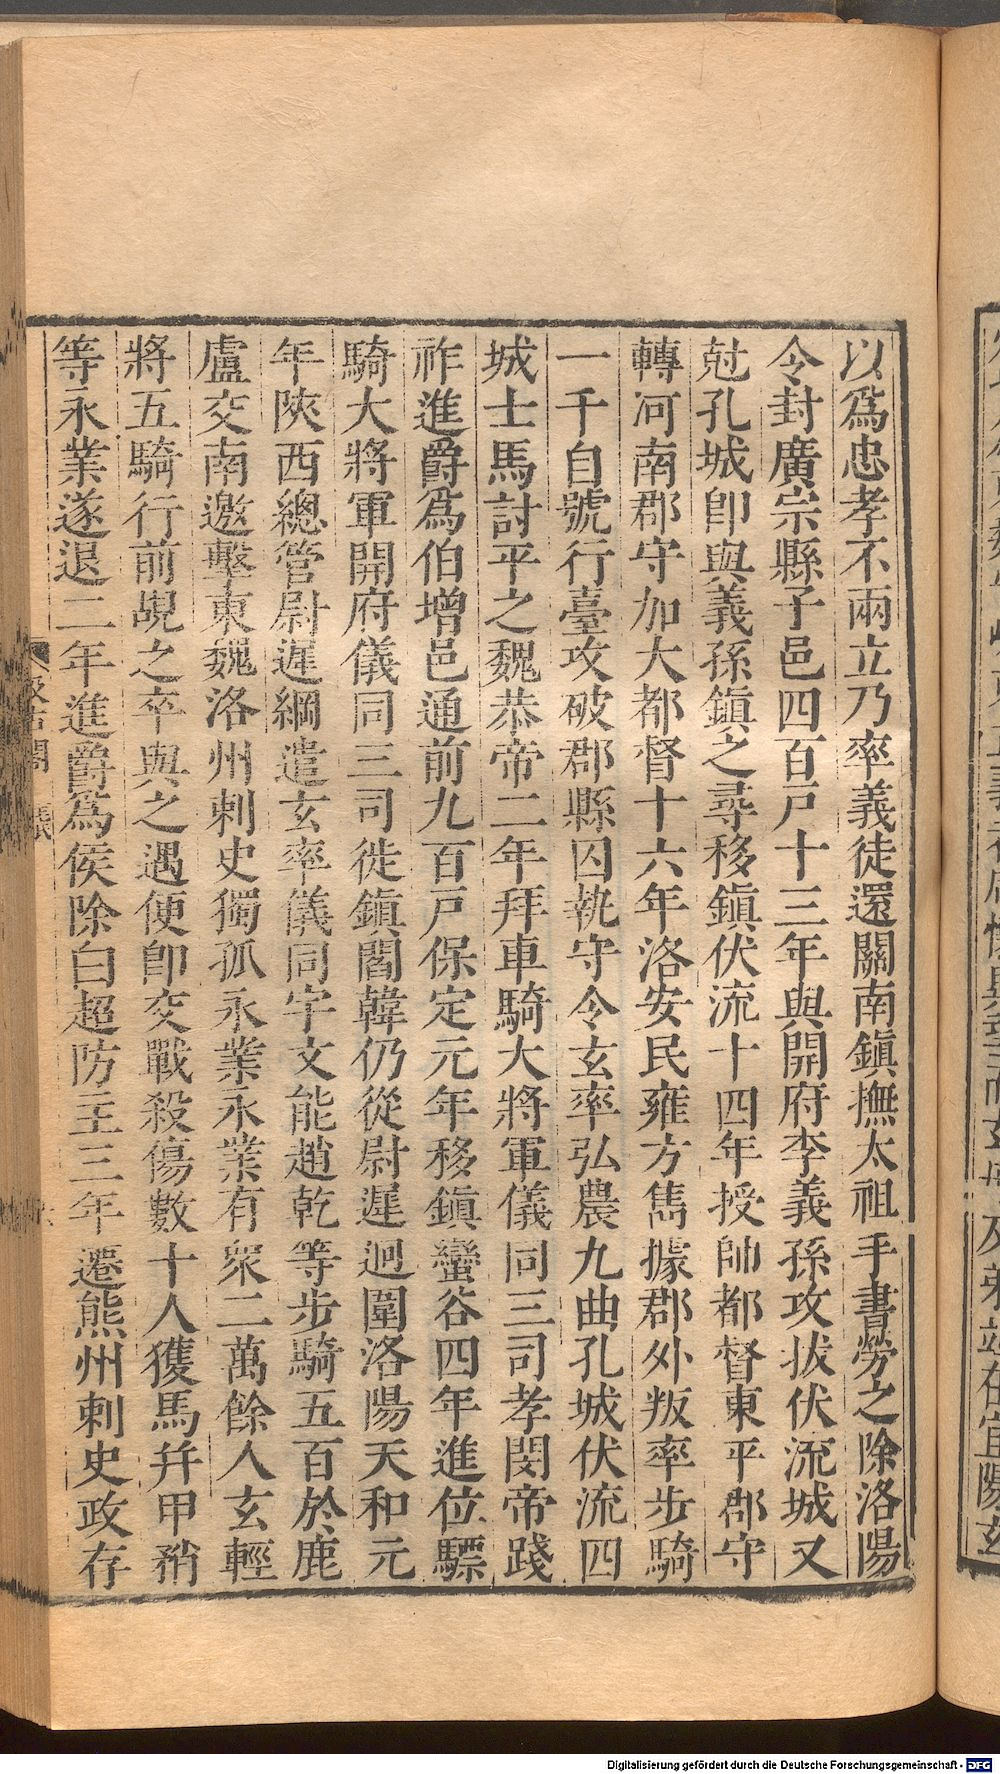 以爲忠孝不兩立乃率義徒還關南鎮撫太祖手書勞之除洛陽
令封廣宗縣子邑四百戸十三年與開府李義孫攻拔伏流城又
尅孔城卽與義孫鎮之尋移鎮伏流十四年授帥都督東平郡守
轉河南郡守加大都督十六年洛安民雍方雋據郡外叛率步騎
一千自號行臺攻破郡縣囚執守令玄率弘農九曲孔城伏流四
城士馬討平之魏恭帝二年拜車騎大將軍儀同三司孝閔帝踐
祚進爵爲伯增邑通前九百戸保定元年移鎮蠻谷四年進位驃
騎大將軍開府儀同三司徙鎮閻韓仍從尉遲迥圍洛陽天和元
年陝西總管尉遲綱遣玄率儀同宇文能趙乾等步騎五百於鹿
盧交南邀擊東魏洛州刺史獨孤永業永業有衆二萬餘人玄輕
將五騎行前覘之卒與之遇便卽交戰殺傷數十人獲馬幷甲矟
等永業遂退二年進爵爲侯除白超防主三年遷熊州刺史政存
Digitalisierung gefördert durch die Deutsche Forschungsgemeinschaft - DFG